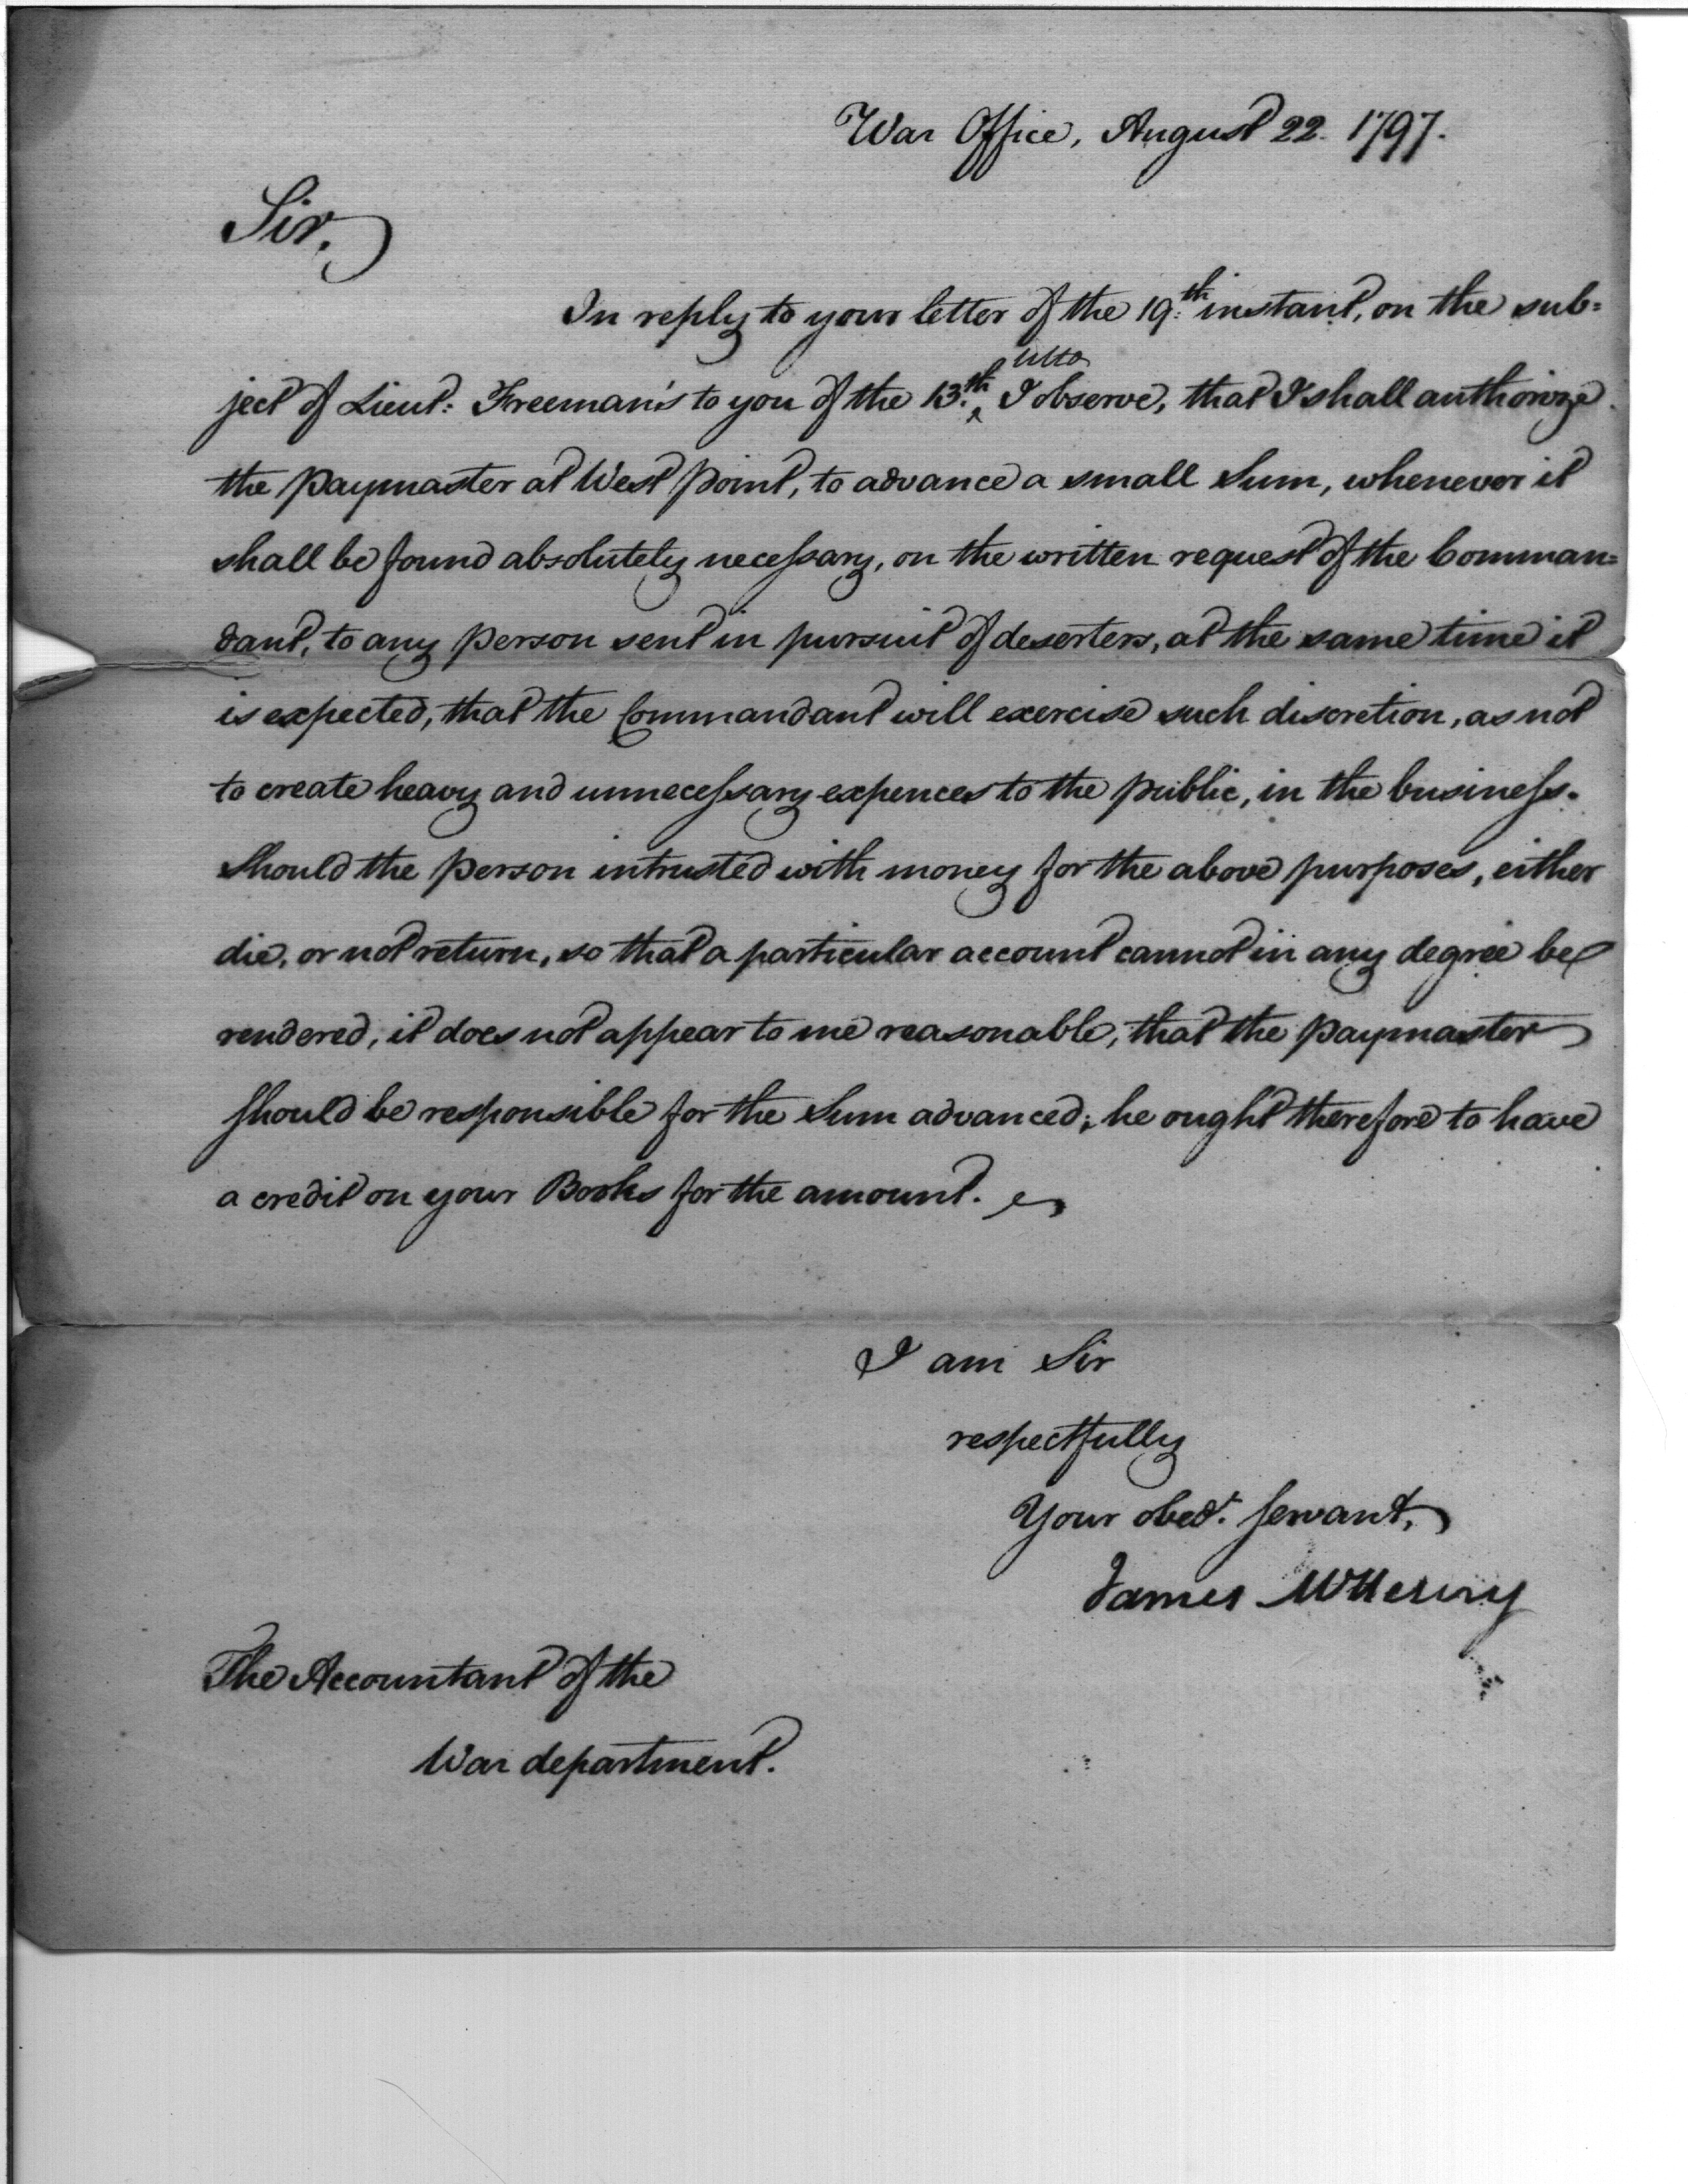 War Office, August 22. 1797.
Sir,
In reply to your letter of the 19.th instant, on the sub=
ulto
ject of Lieut: Freeman's to you of the 13.th ‸ I observe, that I shall authorize
the paymaster at West point, to advance a small Sum, whenever it
shall be found absolutely necessary, on the written request of the Comman=
dant, to any person sent in pursuit of deserters, at the same time it
is expected, that the Commandant will exercise such discretion, as not
to create heavy and unnecessary expences to the public, in the business.
Should the person intrusted with money for the above purposes, either
die, or not return, so that a particular account cannot in any degree be
rendered, it does not appear to me reasonable, that the paymaster
should be responsible for the Sum advanced; he ought therefore to have
a credit on your Books for the amount.
I am Sir
respectfully
Your obed.t servant,
James McHenry
The Accountant of the
War department.